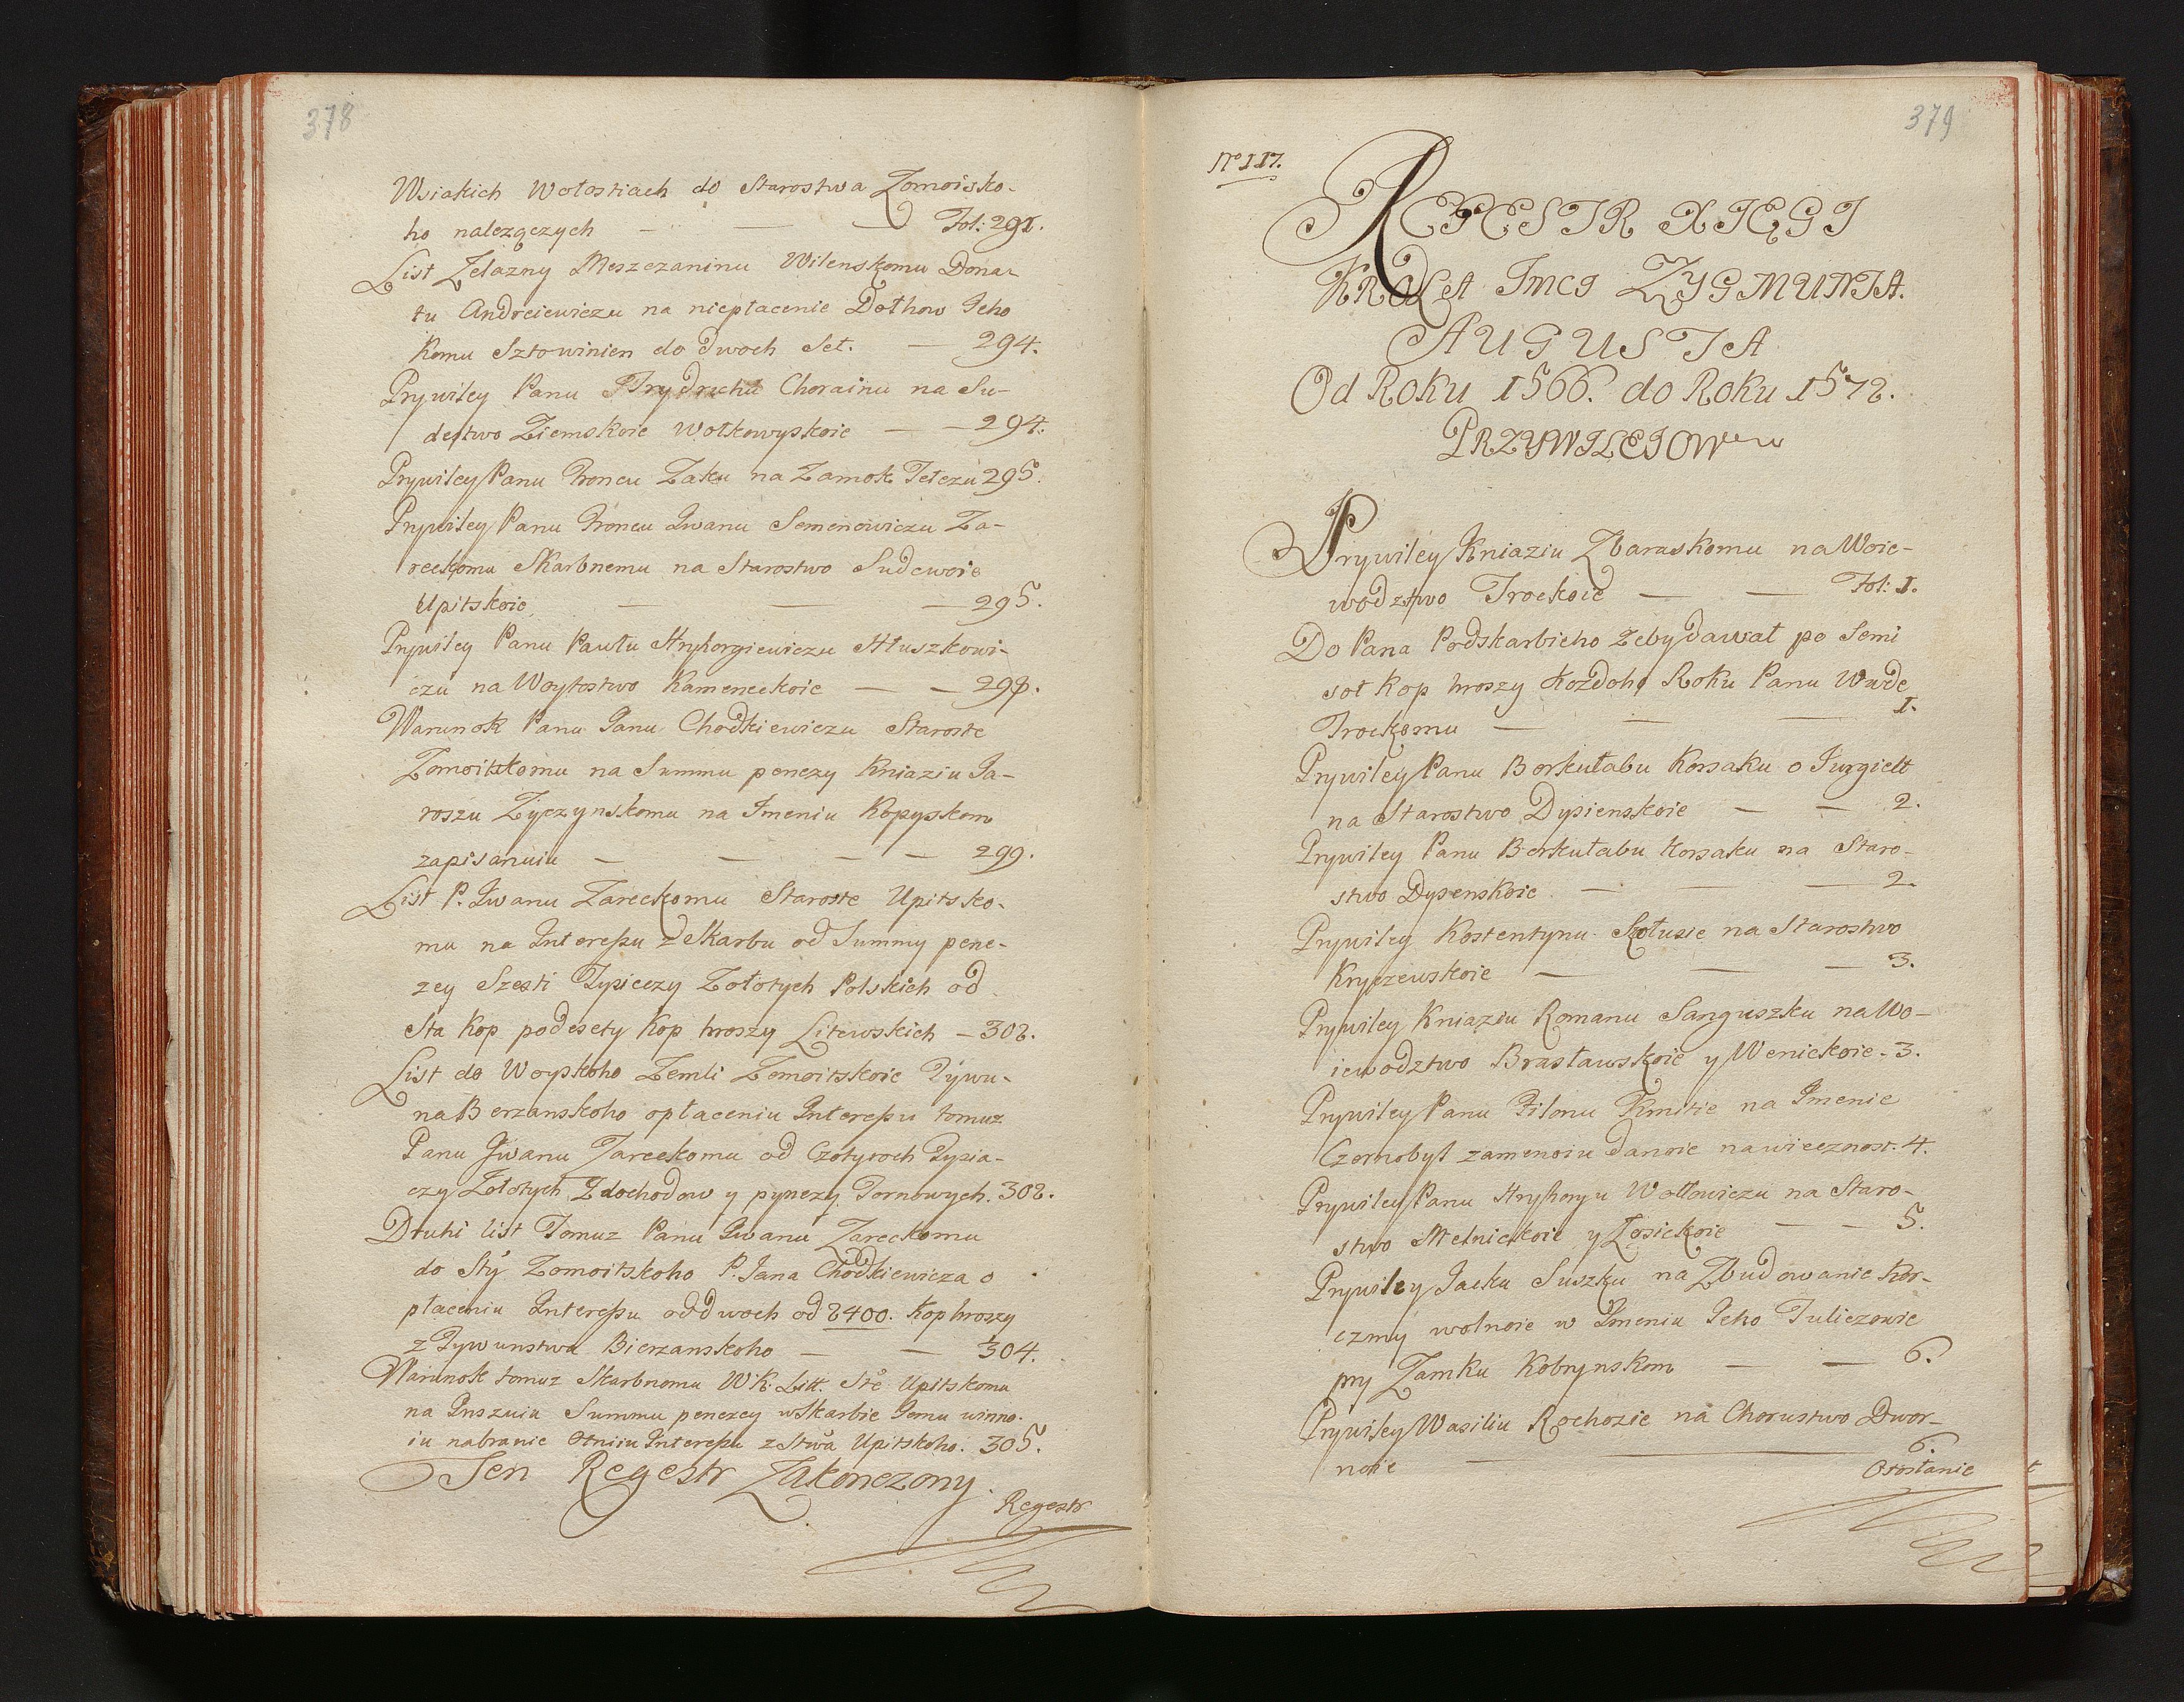 378
Wsiakich Wołostiach do Starostwa Zomoisko-
ho nalezączych — — Fol: 291.
List Zelazny Meszczaninu Wilenskomu Dona-
tu Andreiewiczu na niepłacenie Dołhow Jeho
Komu Sztowinien do dwoch Set. — 294.
Prywiley Panu Frydrychu Chorainu na Su-
destwo Ziemskoie Wołkowyskoie — — 294.
Prywiley Panu Troncu Zaku na Zamok Tetczu 295.
Prywiley Panu Troncu Iwanu Semenowiczu Za-
reckomu Skarbnemu na Starostwo Sudewoie
Upitskoie — — — 295.
Prywiley Panu Pawłu Hryhorgiewiczu Hłuszkowi-
czu na Woytostwo Kameneckoie — — 297.
Warunok Panu Janu Chodkiewiczu Staroste
Zomoitskomu na Summu penezy Kniaziu Ja-
roszu Zyczynskomu na Imeniu Kopyskom
zapisanuiu — — — — 299.
List P. Iwanu Zareckomu Staroste Upitsko-
mu na Interessu z Skarbu od Summy pene-
zey Szesti Tysieczy Zołotych Polskich od
Sta Kop podesety Kop hroszy Litewskich — 302.
List do Woyskoho Zemli Zomoitskoie Tywu-
na Berzanskoho opłaceniu Interessu tomuz
Panu Iwanu Zareckomu od Czotyroch Tysia-
czy Zołotych Zdochodow y pynezy Tornowych. 302.
Druhi list Tomuz Panu Iwanu Zareckomu
do Sty Zomoitskoho P. Jana Chodkiewicza o
płaceniu Interessu od dwoch od 2400. Kop hroszy
z Tywunstwa Bierzanskoho — — 304.
Warunok tomuz Skarbnomu W K. Litt. Ste Upitskomu
na Inszuiu Summu penezey w Skarbie Jemu winno-
iu nabranie Interessu z Stwa Upitskoho. 305.
Ten Regestr Zakonczony.
Regestr
379
No 117.
REJESTR XIĘGI
KROLA Jmci ZYGMUNTA.
AUGUSTA
Od Roku 1566. do Roku 1572.
PRZYWILEIOW
Prywiley Kniaziu Zbaraskomu na Woie-
wodztwo Trockoie — — Fol: 1.
Do Pana Podskarbieho zeby dawał po Semi
sot Kop hroszy Kozdoho Roku Panu Wwde
Trockomu — — — 1.
Prywiley Panu Borkułabu Korsaku o Jurgielt
na Starostwo Dysienskoie — — 2.
Prywiley Panu Borkułabu Korsaku na Staro-
stwo Dysenskoie — — — 2.
Prywiley Kostentynu Sołusie na Starostwo
Kryczewskoie — — — 3.
Prywiley Kniaziu Romanu Sanguszku na Wo-
iewodztwo Brasławskoie y Wenickoie - 3.
Prywiley Panu Filonu Kmitie na Imenie
Czornobyl zamenoiu danoie na wiecznost. 4.
Prywiley Panu Hryhoryu Wołłowiczu na Staro-
stwo Melnickoie y Łosickoie — — 5.
Prywiley Jacku Suszku na Zbudowanie Kor-
czmy wolnoie w Imeniu Jeho Tuliczowie
pry Zamku Kobrynskom — — 6.
Prywiley Wasiliu Rochozie na Chorustwo Dwor-
noie — — 6.
Otosłanie